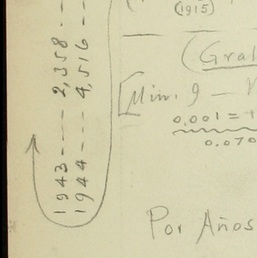 (1915)
(Gral
[Min. 9 —
0.001 =
0.070
Por Años
1943 ---- 2,358 --
1944 ---- 4,516 --